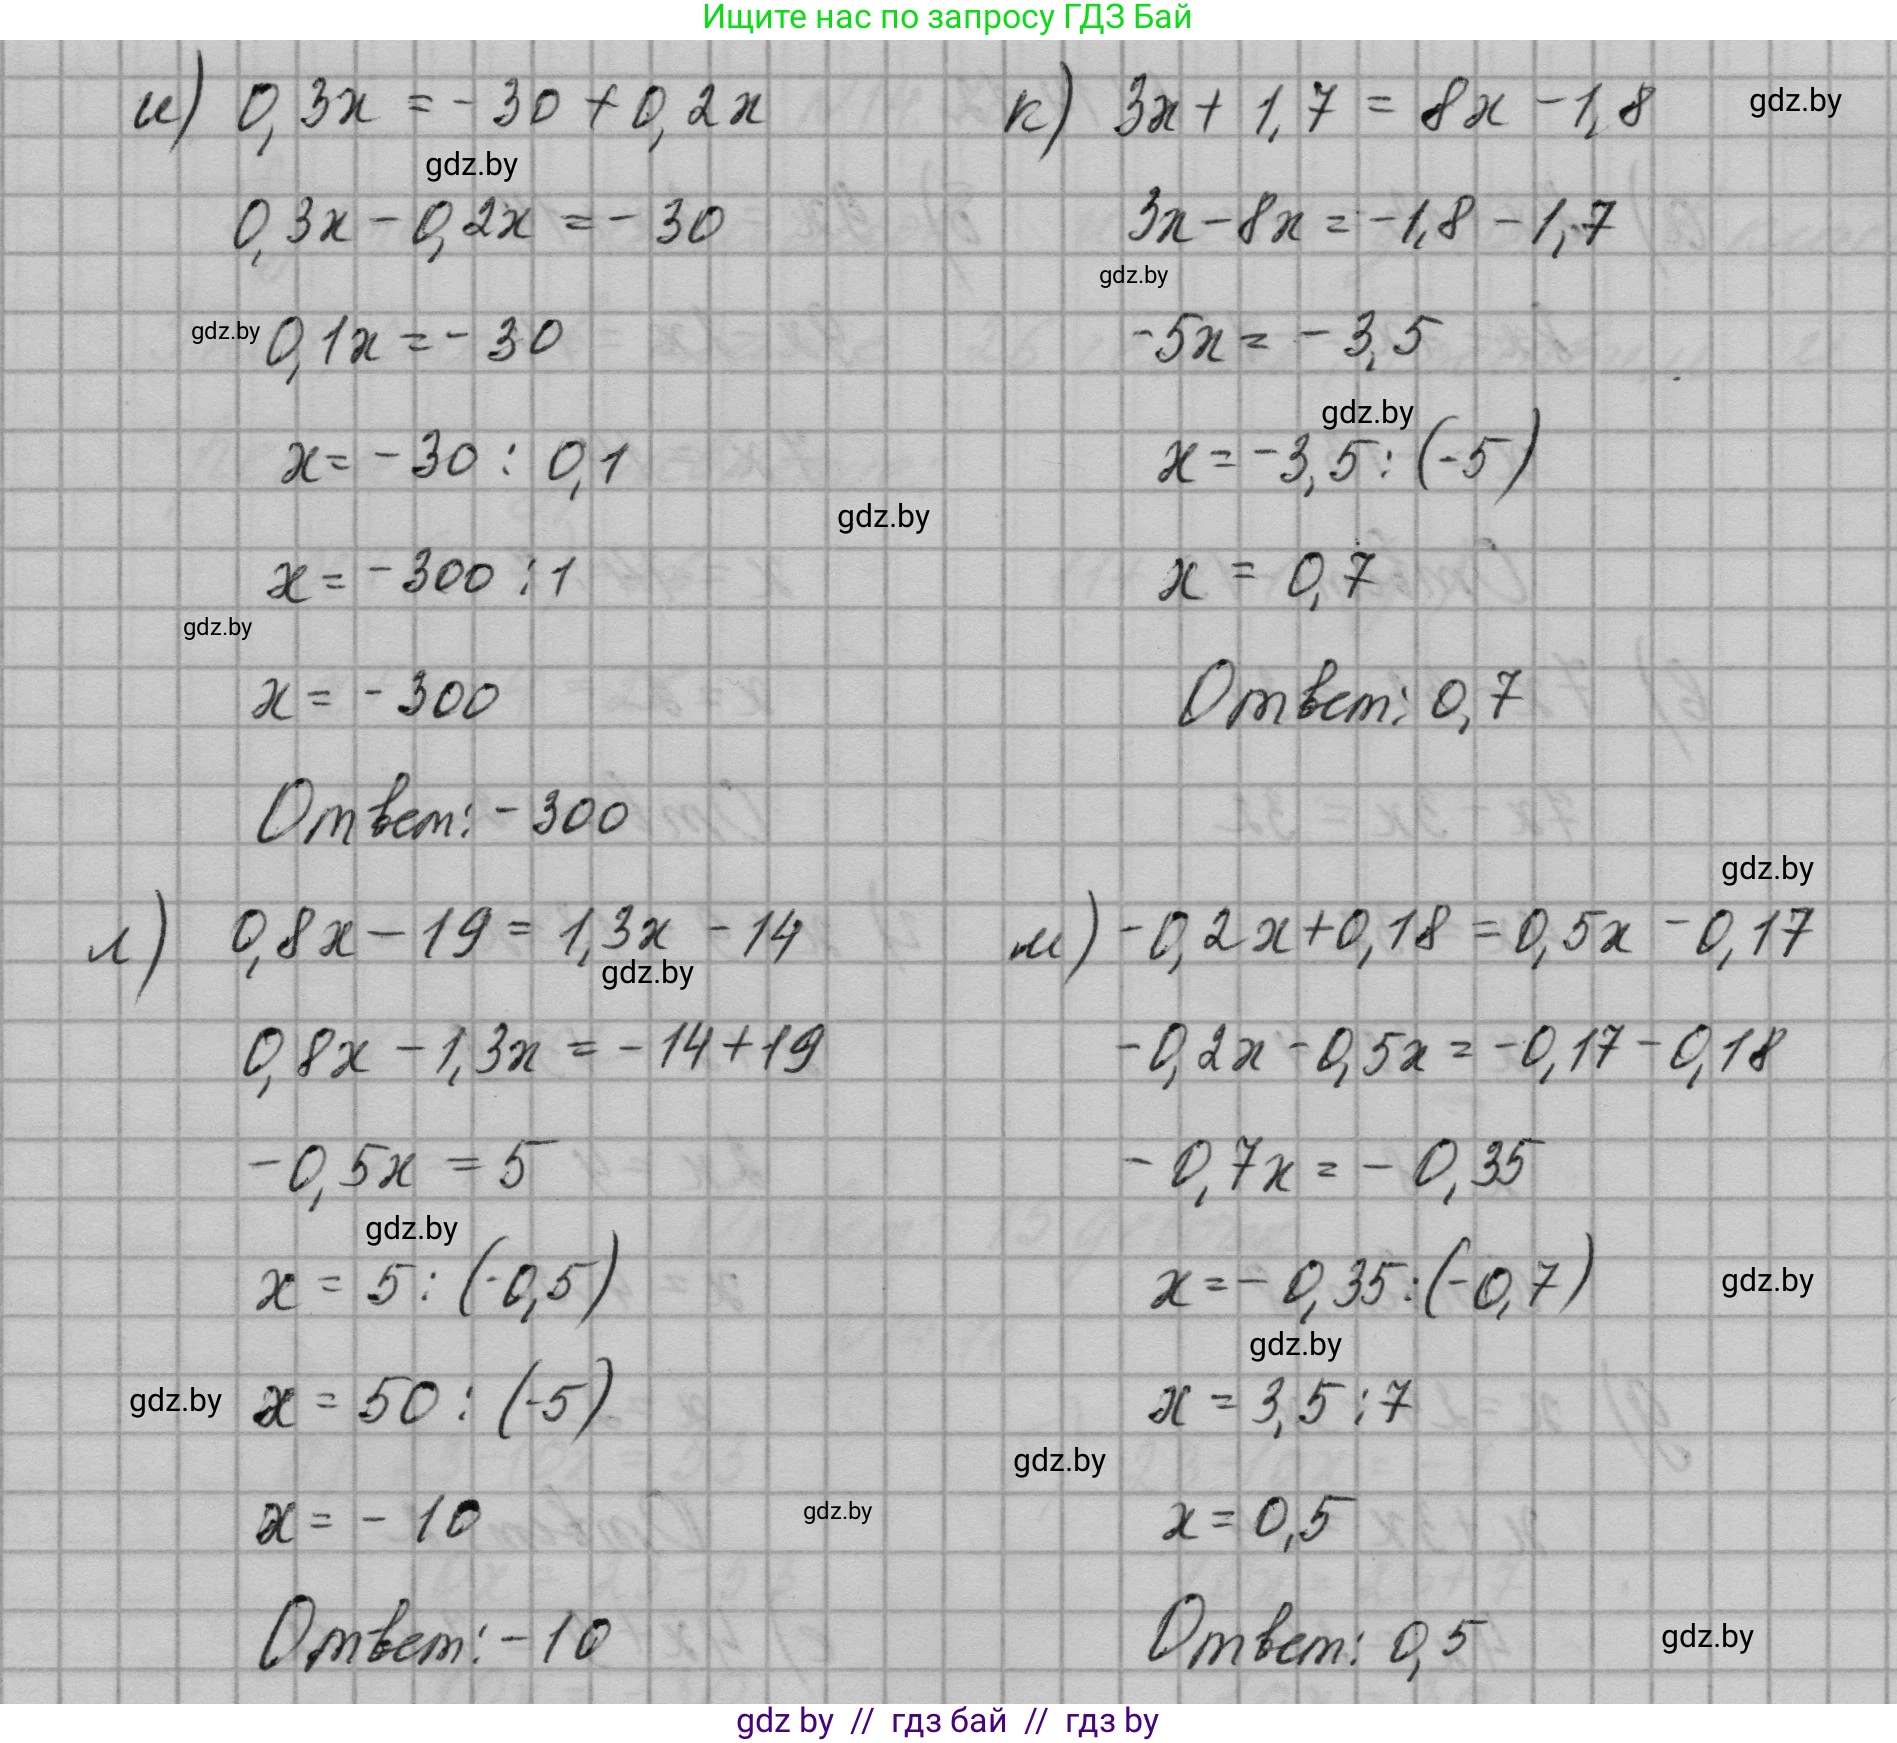 Ищите нас по запросу ГДЗ Бай
и) 0,3x = -30 + 0,2x
gdz.by
0,3x - 0,2x = -30
gdz.by
0,1x = -30
x = -30 : 0,1
x = -300 : 1
gdz.by
x = -300
Ответ: -300
к) 3x + 1,7 = 8x - 1,8
gdz.by
3x - 8x = -1,8 - 1,7
gdz.by
-5x = -3,5
gdz.by
x = -3,5 : (-5)
gdz.by
x = 0,7
Ответ: 0,7
gdz.by
л) 0,8x - 19 = 1,3x - 14
gdz.by
0,8x - 1,3x = -14 + 19
-0,5x = 5
gdz.by
x = 5 : (-0,5)
gdz.by
x = 50 : (-5)
x = -10
gdz.by
Ответ: -10
м) -0,2x + 0,18 = 0,5x - 0,17
-0,2x - 0,5x = -0,17 - 0,18
-0,7x = -0,35
x = -0,35 : (-0,7)
gdz.by
gdz.by
x = 3,5 : 7
gdz.by
x = 0,5
Ответ: 0,5
gdz.by
gdz by // гдз бай // гдз by